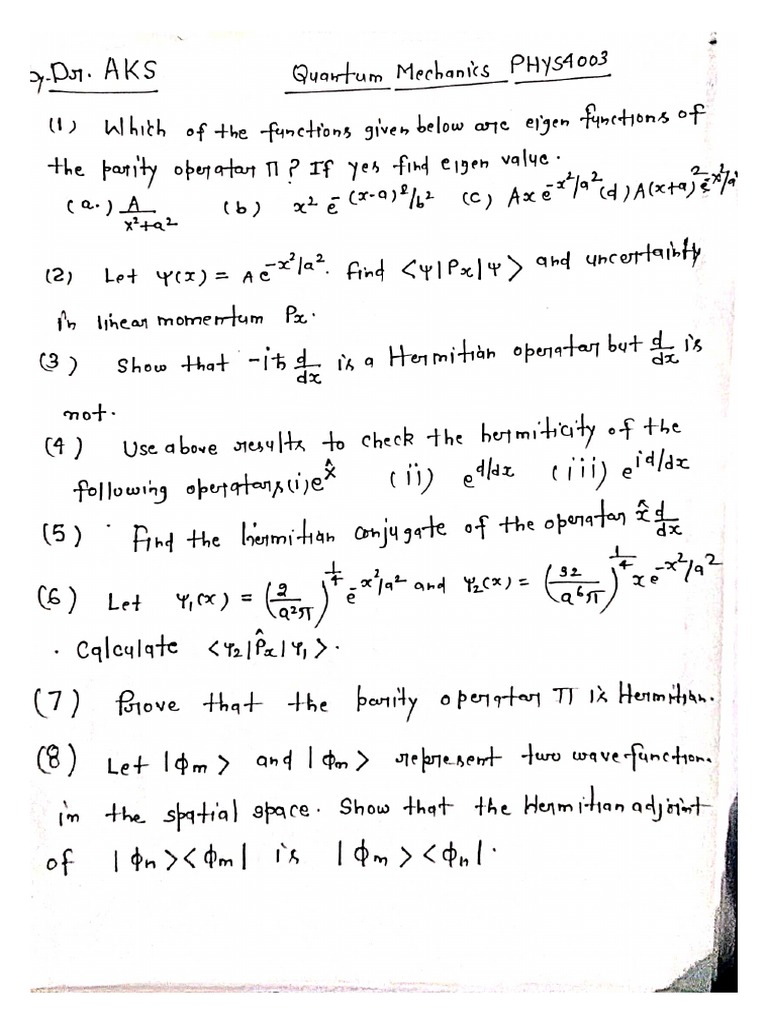 Dr. AKS Quantum Mechanics PHYS4003
(1) Which of the functions given below are eigen functions of
the parity operator Π? If yes find eigen value.
(a.) A/(x²+a²) (b) x² e^{-(x-a)²/b²} (c) Ax e^{-x²/a²} (d) A(x+a)² e^{-x²/a²}
(2) Let ψ(x) = A e^{-x²/a²}. find <ψ|Px|ψ> and uncertainty
in linear momentum Px.
(3) Show that -iħ d/dx is a Hermitian operator but d/dx is
not.
(4) Use above results to check the hermiticity of the
following operators (i) e^{x̂} (ii) e^{d/dx} (iii) e^{id/dx}
(5) Find the Hermitian conjugate of the operator x̂ d/dx
(6) Let ψ₁(x) = (2/(a²π))^{1/4} e^{-x²/a²} and ψ₂(x) = (32/(a⁶π))^{1/4} x e^{-x²/a²}
. Calculate <ψ₂|P̂x|ψ₁>.
(7) Prove that the parity operator Π is Hermitian.
(8) Let |ϕm> and |ϕn> represent two wave function.
in the spatial space. Show that the Hermitian adjoint
of |ϕn><ϕm| is |ϕm><ϕn|.